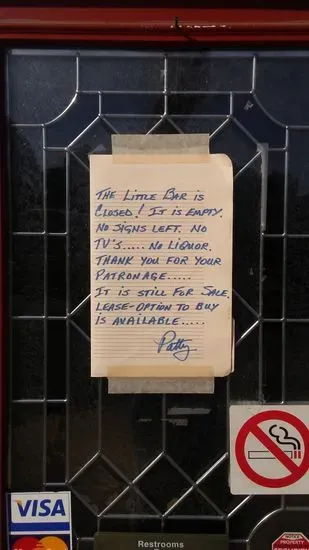 THE LITTLE BAR IS
CLOSED! IT IS EMPTY.
NO SIGNS LEFT. NO
TV'S..... NO LIQUOR.
THANK YOU FOR YOUR
PATRONAGE.....
IT IS STILL FOR SALE.
LEASE-OPTION TO BUY
IS AVAILABLE.....
Patty
VISA
Restrooms
PROPERTY